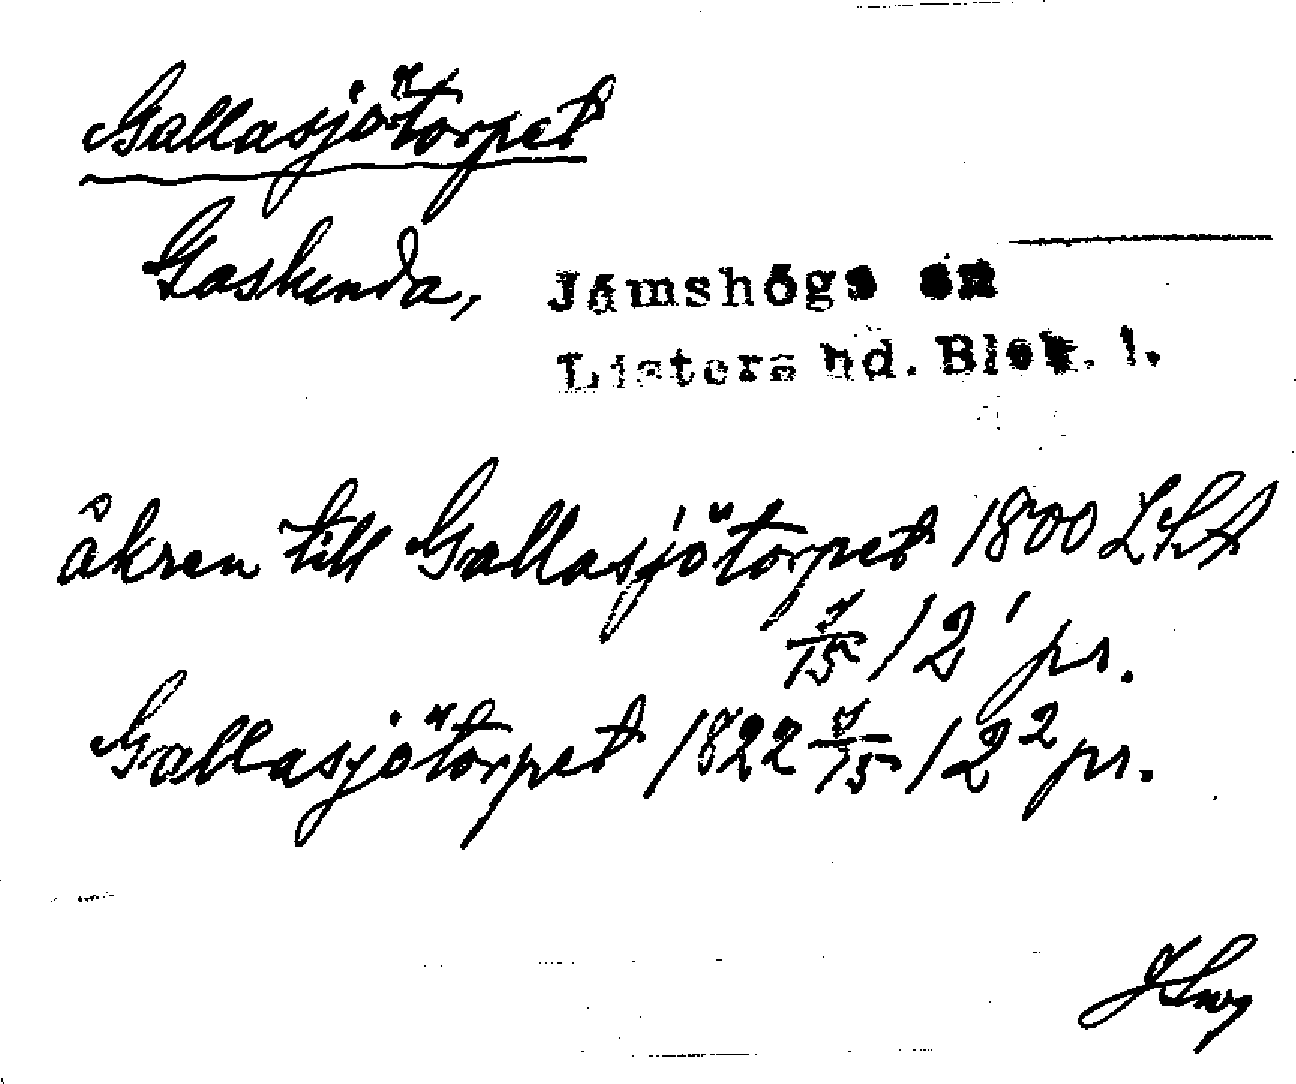 Gallasjötorpet
Gaskunda, Jämshögs sn
Listers hd. Blek. l.
åkren till Gallasjötorpet 1800 LSA
7/15 12¹ pr.
Gallasjötorpet 1822 7/15 12² pr.